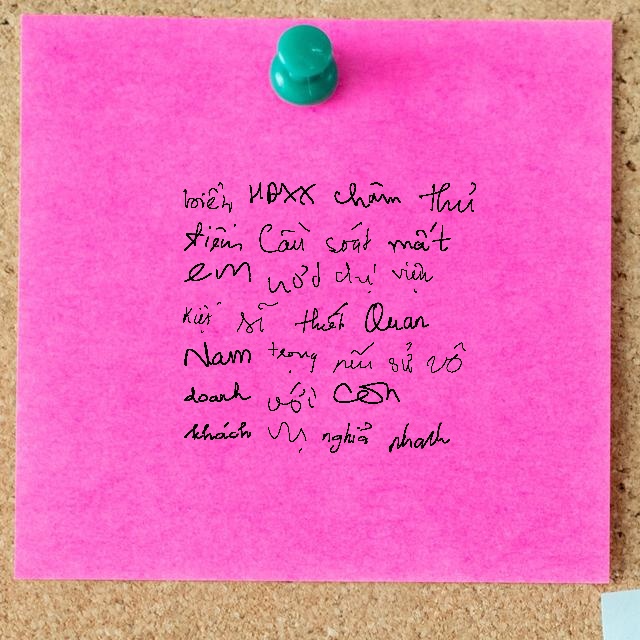 biển HĐXX chậm thứ
tiên Cầu soát mất
em dự viện
kiệt sĩ thiết Quan
Nam trọng nếu sử vô
doanh với Còn
khách Vị nghĩa nhanh